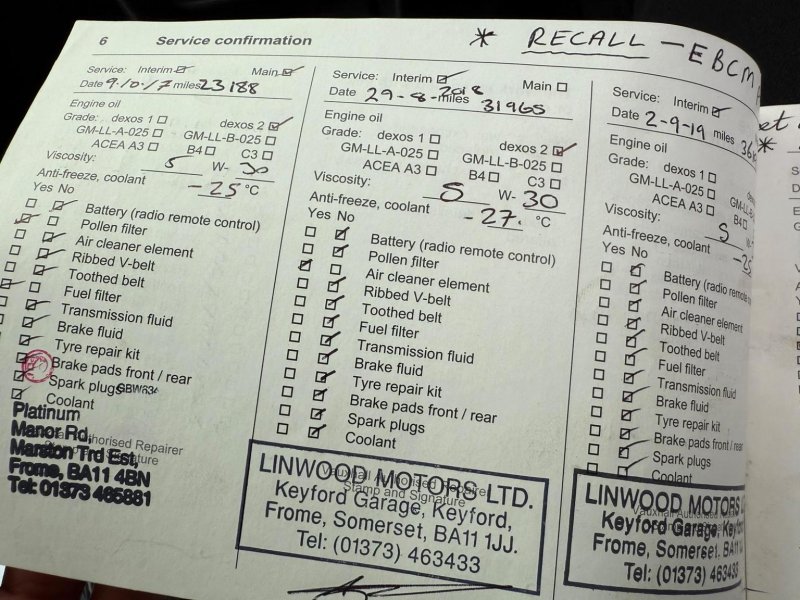 6 Service confirmation
* RECALL - EBCM
Service: Interim Main
Date 9/10/17 miles 23188
Engine oil
Grade: dexos 1 dexos 2
GM-LL-A-025 GM-LL-B-025
ACEA A3 B4 C3
Viscosity: 5 W- 30
Anti-freeze, coolant -25 °C
Yes No
Battery (radio remote control)
Pollen filter
Air cleaner element
Ribbed V-belt
Toothed belt
Fuel filter
Transmission fluid
Brake fluid
Tyre repair kit
Brake pads front / rear
Spark plugs
Coolant
Platinum
Manor Rd,
Marston Trd Est,
Frome, BA11 4BN
Tel: 01373 465881
Service: Interim Main
Date 29-8-2018 miles 31965
Engine oil
Grade: dexos 1 dexos 2
GM-LL-A-025 GM-LL-B-025
ACEA A3 B4 C3
Viscosity: 5 W- 30
Anti-freeze, coolant -27. °C
Yes No
Battery (radio remote control)
Pollen filter
Air cleaner element
Ribbed V-belt
Toothed belt
Fuel filter
Transmission fluid
Brake fluid
Tyre repair kit
Brake pads front / rear
Spark plugs
Coolant
Vauxhall Authorised Repairer
Stamp and Signature
LINWOOD MOTORS LTD.
Keyford Garage, Keyford,
Frome, Somerset, BA11 1JJ.
Tel: (01373) 463433
Service: Interim
Date 2-9-19 miles
Engine oil
Grade: dexos 1
GM-LL-A-025
ACEA A3 B4
Viscosity: 5
Anti-freeze, coolant
Yes No
Battery (radio remote
Pollen filter
Air cleaner element
Ribbed V-belt
Toothed belt
Fuel filter
Transmission fluid
Brake fluid
Tyre repair kit
Brake pads front / rear
Spark plugs
Coolant
LINWOOD MOTORS
Keyford Garage,
Frome, Somerset, BA11
Tel: (01373) 463433